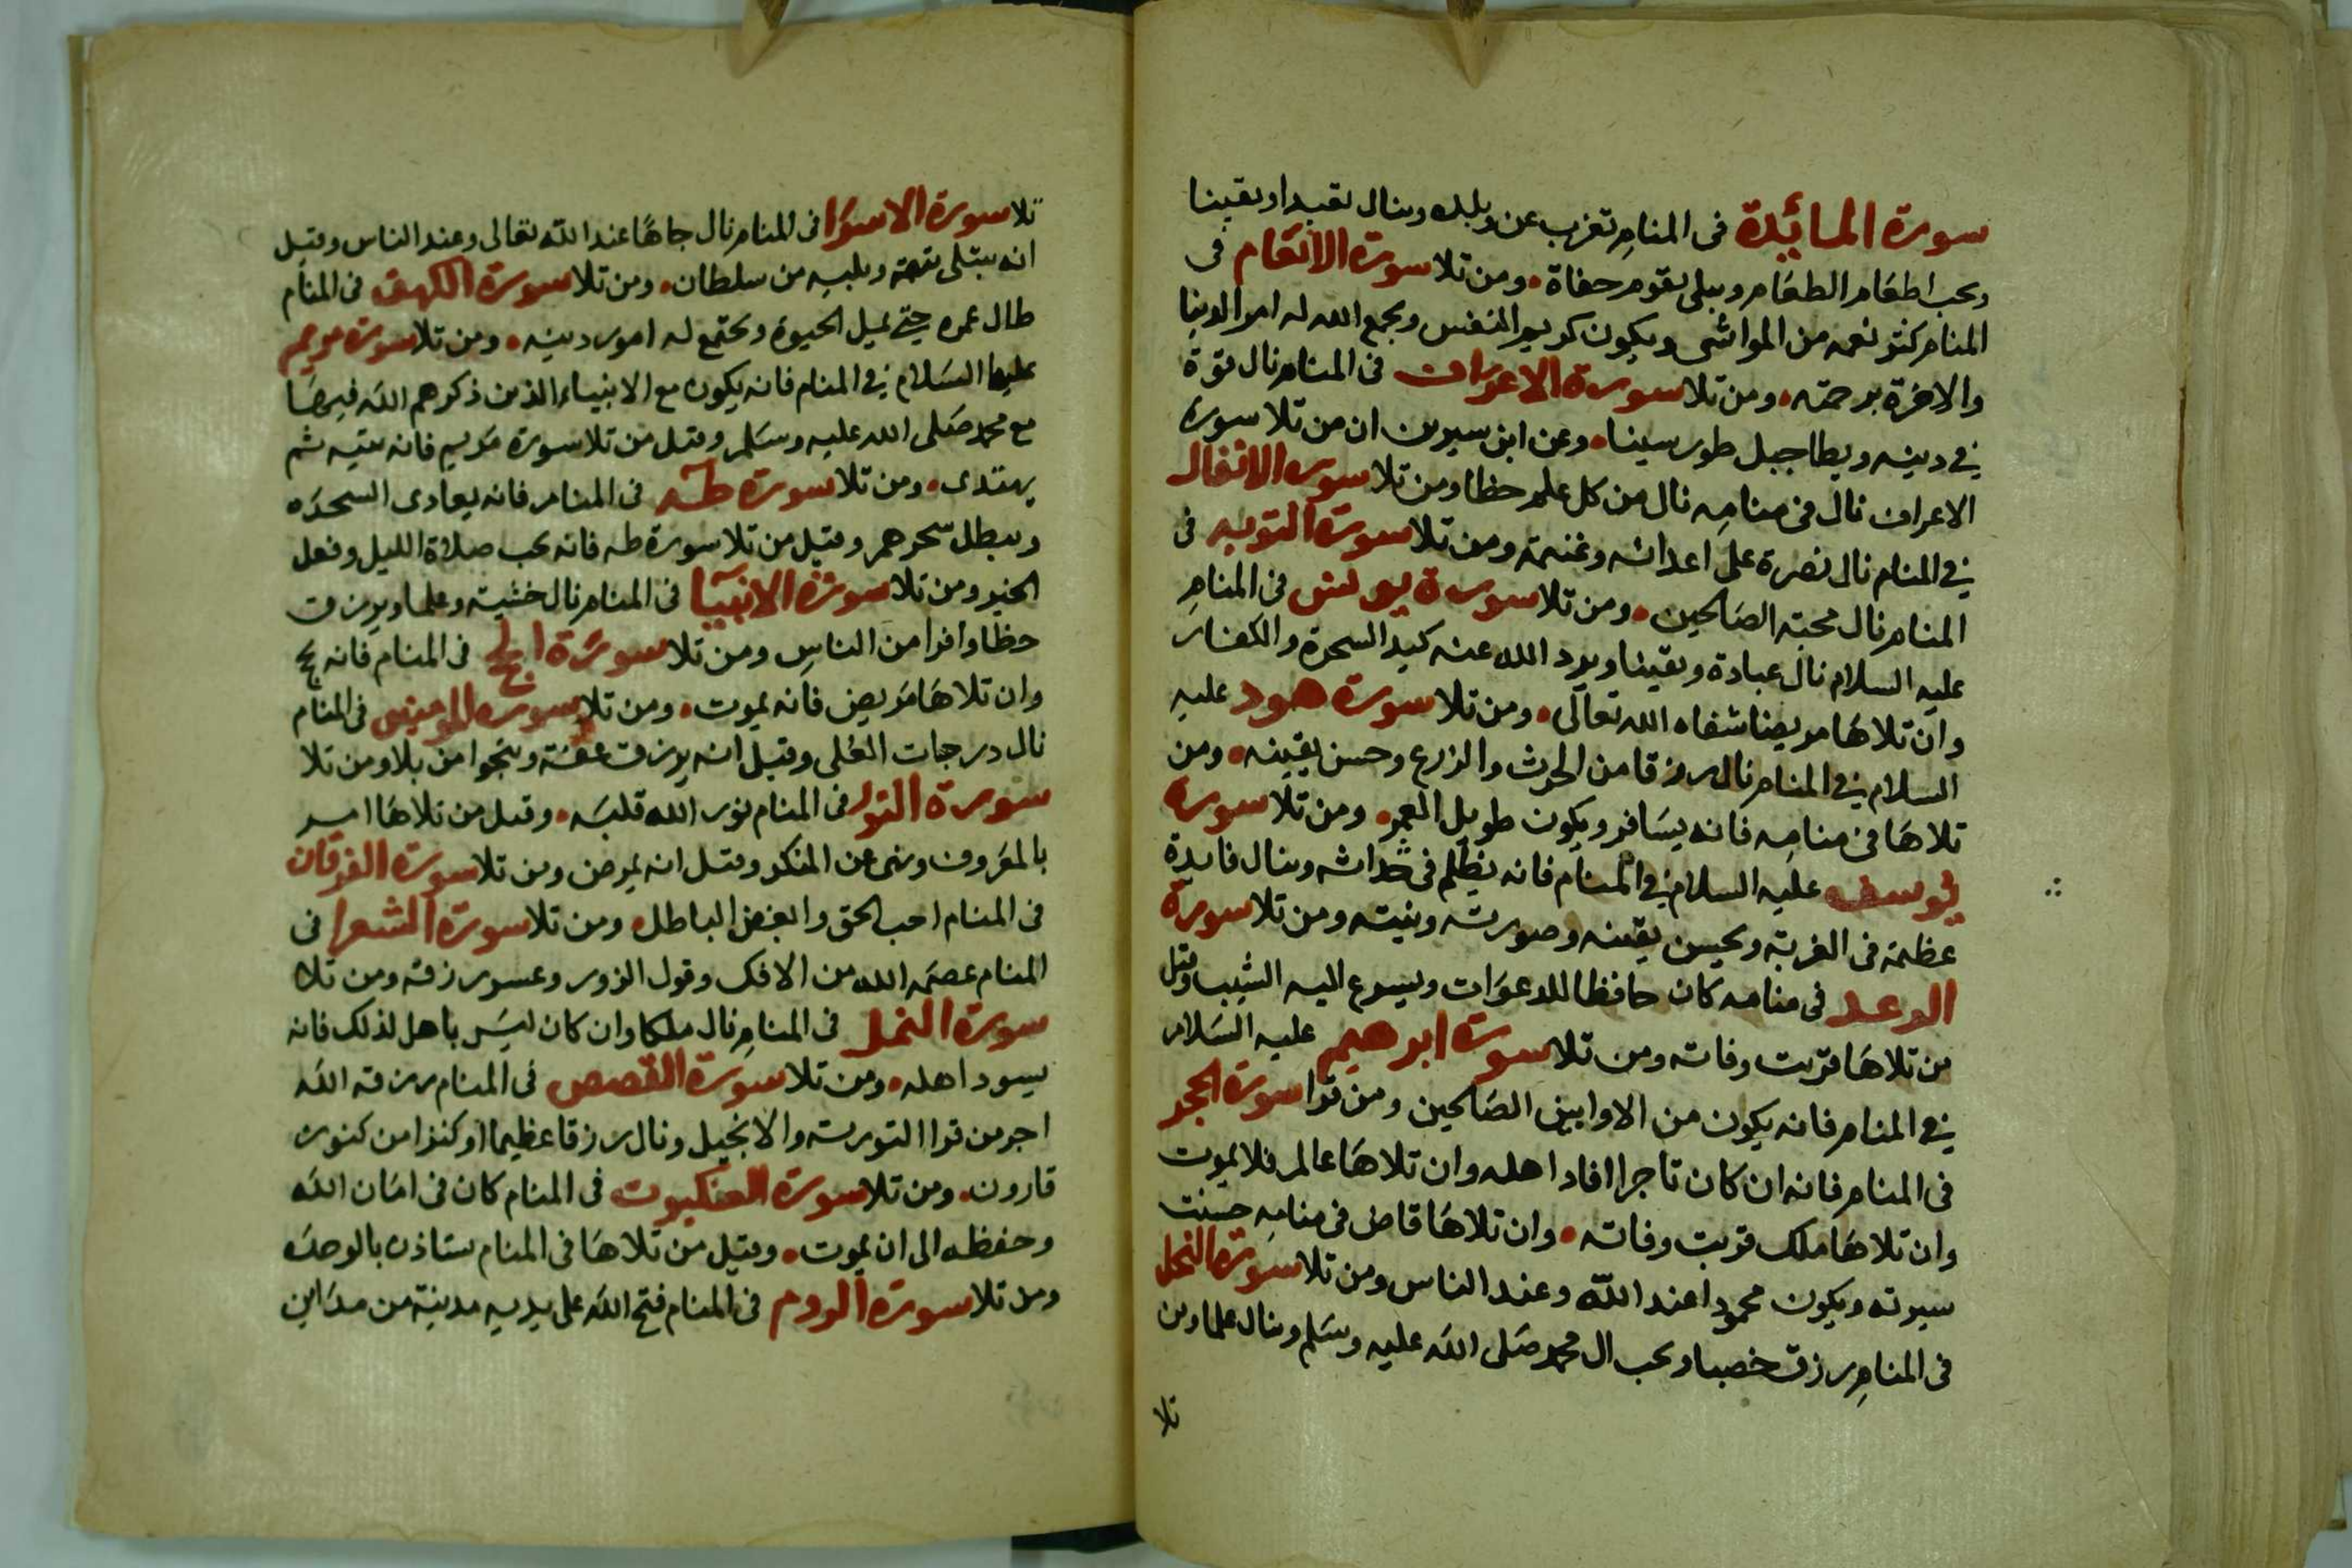 سورة المائدة فى المنام تغرب عن بلده وينال تعبدا ويقينا
ويحب اطعام الطعام ويبلى بقوم حفاة ومن تلا سورة الانعام فى
المنام كثر نعمه من المواشى ويكون كريم النفس ويجمع الله له امر الدنيا
والاخرة برحمته ومن تلا سورة الاعراف فى المنام نال قوة
فى دينه ويطا جبل طور سينا وعن ابن سيرين ان من تلا سورة
الاعراف نال فى منامه نال من كل علم حظا ومن تلا سورة الانفال
فى المنام نال نصرة على اعدائه وغنمة ومن تلا سورة التوبه فى
المنام نال محبة الصالحين ومن تلا سورة يونس فى المنام
عليه السلام نال عبادة ويقينا ويرد الله عنه كيد السحرة والكفار
وان تلاها مريضا شفاه الله تعالى ومن تلا سورة هود عليه
السلام فى المنام نال رزقا من الحرث والزرع وحسن يقينه ومن
تلاها فى منامه فانه يسافر ويكون طويل العمر ومن تلا سورة
يوسف عليه السلام فى المنام فانه يظلم فى حداثه وينال فايدة
عظيمة فى الغربة ويحسن يقينه وصورته ونيته ومن تلا سورة
الرعد فى منامه كان حافظا للدعوات ويسرع اليه الشيب وقيل
من تلاها قربت وفاته ومن تلا سورة ابرهيم عليه السلام
فى المنام فانه يكون من الاوابين الصالحين ومن قرا سورة الحجر
فى المنام فانه ان كان تاجرا افاد اهله وان تلاها عالم فلا يموت
وان تلاها ملك قربت وفاته وان تلاها قاض فى منامه حسنت
سيرته ويكون محمودا عند الله وعند الناس ومن تلا سورة النحل
فى المنام رزق خصبا ويحب ال محمد صلى الله عليه وسلم وينال علما ومن
تلا
تلا سورة الاسرا فى المنام نال جاها عند الله تعالى وعند الناس وقيل
انه يبتلى بتهمة وبلية من سلطان ومن تلا سورة الكهف فى المنام
طال عمره حتى يميل الحيوة ويجتمع له امور دينه ومن تلا سورة مريم
عليها السلام فى المنام فانه يكون مع الانبياء الذين ذكرهم الله فيرضا
مع محمد صلى الله عليه وسلم وقيل من تلا سورة مريم فانه يتيه ثم
يهتدى ومن تلا سورة طه فى المنام فانه يعادى السحره
ويبطل سحرهم وقيل من تلا سورة طه فانه يحب صلاة الليل وفعل
الخير ومن تلا سورة الانبيا فى المنام نال خشية وعلما ويرزق
حظا وافرا من الناس ومن تلا سورة الحج فى المنام فانه يحج
وان تلاها مريض فانه يموت ومن تلا سورة المومنين فى المنام
نال درجات العلى وقيل انه يرزق عفة وينجوا من بلا ومن تلا
سورة النور فى المنام نور الله قلبه وقيل من تلاها امر
بالمعروف ونهى عن المنكر وقيل انه يمرض ومن تلا سورة الفرقان
فى المنام احب الحق وابغض الباطل ومن تلا سورة الشعرا فى
المنام عصمه الله من الافك وقول الزور وعسور زقه ومن تلا
سورة النمل فى المنام نال ملكا وان كان ليس باهل لذلك فانه
يسود اهله ومن تلا سورة القصص فى المنام رزقه الله
اجر من قرا التورية والانجيل ونال رزقا عظيما او كنزا من كنوز
قارون ومن تلا سورة العنكبوت فى المنام كان فى امان الله
وحفظه الى ان يموت وقيل من تلاها فى المنام ستاذن بالوحده
ومن تلا سورة الروم فى المنام فتح الله على يديه مدينة من مداين